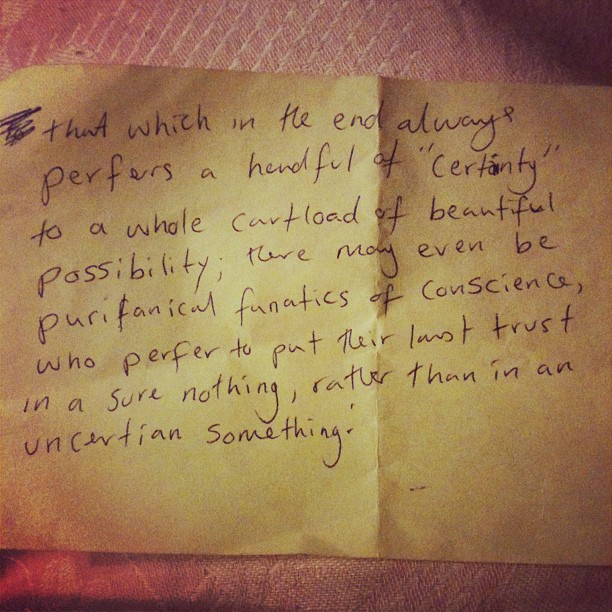 that which in the end always
perfers a hendful of "Certinty"
to a whole cartload of beautiful
possibility; there may even be
puritanical funatics of conscience,
who perfer to put their last trust
in a sure nothing, rather than in an
uncertian something.'